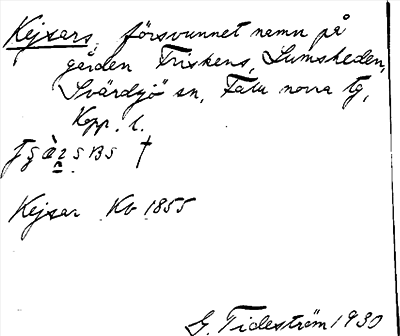 Kejsars, försvunnet namn på
gården Friskens, Lumsheden,
Svärdsjö sn, Falu norra tg,
Kopp. l.
†
Kejsar Kb 1855
G. Tideström 1930